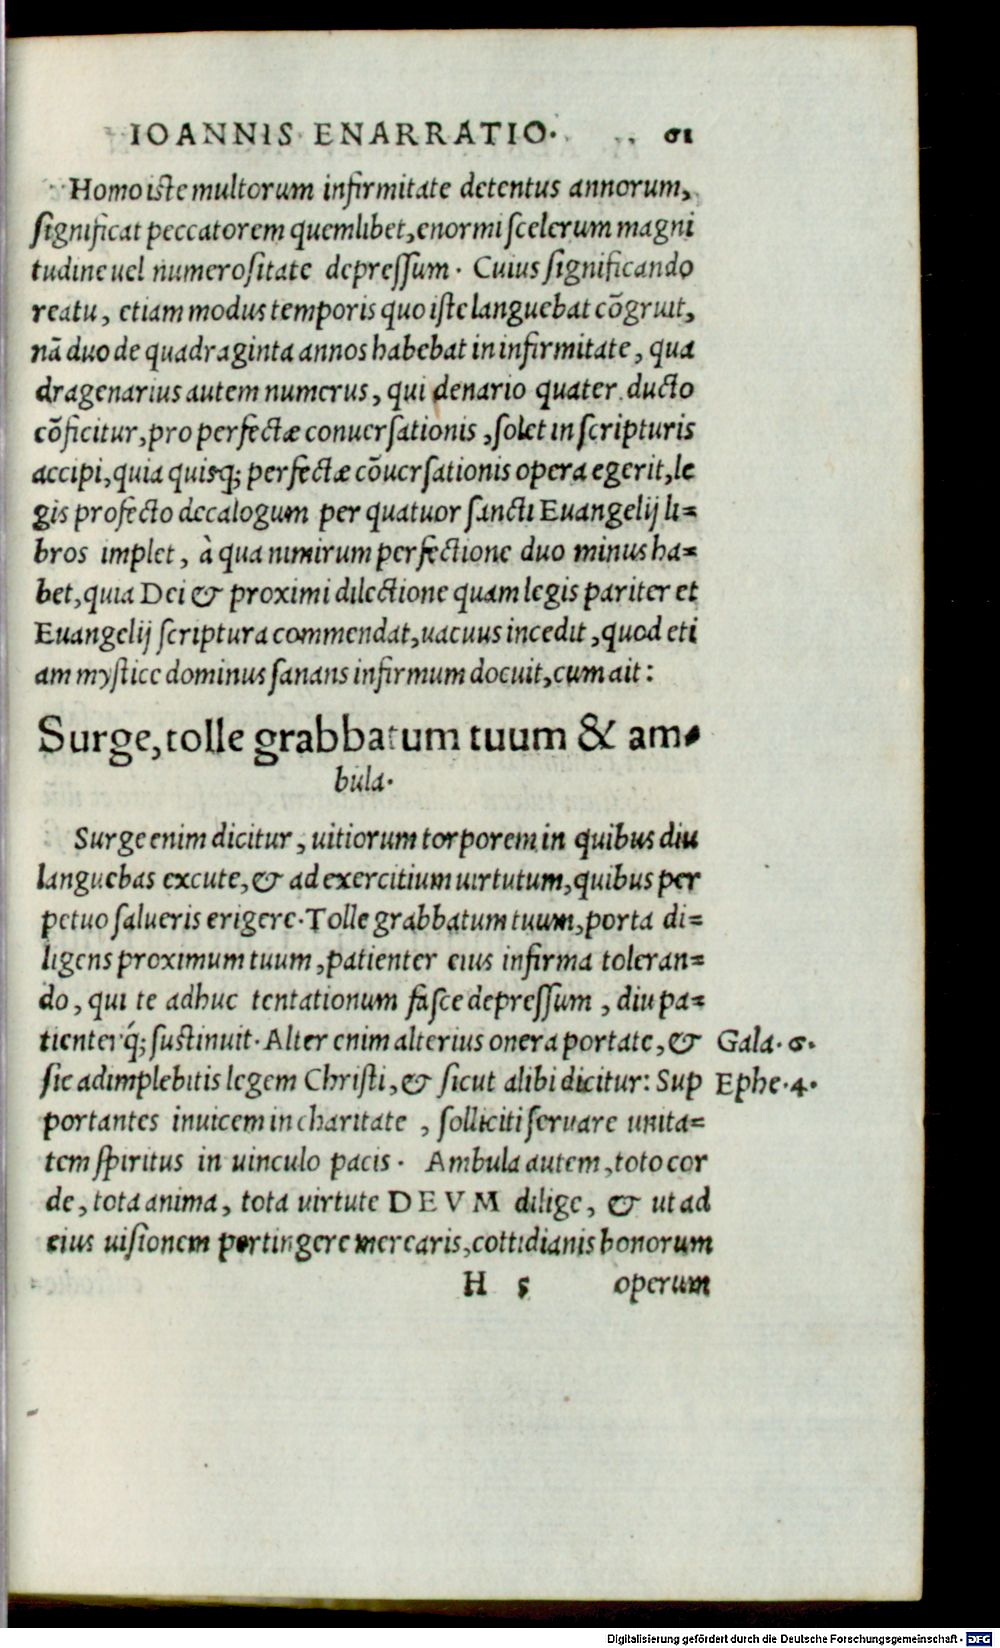 IOANNIS ENARRATIO. 61
Homo iste multorum infirmitate detentus annorum,
significat peccatorem quemlibet, enormi scelerum magni
tudine uel numerositate depressum. Cuius significando
reatu, etiam modus temporis quo iste languebat cõgruit,
nã duo de quadraginta annos habebat in infirmitate, qua
dragenarius autem numerus, qui denario quater ducto
cõficitur, pro perfectæ conuersationis, solet in scripturis
accipi, quia quisq; perfectæ cõuersationis opera egerit, le
gis profecto decalogum per quatuor sancti Euangelij li=
bros implet, à qua nimirum perfectione duo minus ha=
bet, quia Dei & proximi dilectione quam legis pariter et
Euangelij scriptura commendat, uacuus incedit, quod eti
am mystice dominus sanans infirmum docuit, cum ait:
Surge, tolle grabbatum tuum & am=
bula.
Surge enim dicitur, uitiorum torporem in quibus diu
languebas excute, & ad exercitium uirtutum, quibus per
petuo salueris erigere. Tolle grabbatum tuum, porta di=
ligens proximum tuum, patienter eius infirma toleran=
do, qui te adhuc tentationum fasce depressum, diu pa=
tienterq́; sustinuit. Alter enim alterius onera portate, & Gala. 6.
sic adimplebitis legem Christi, & sicut alibi dicitur: Sup Ephe. 4.
portantes inuicem in charitate, solliciti seruare unita=
tem spiritus in uinculo pacis. Ambula autem, toto cor
de, tota anima, tota uirtute DEVM dilige, & ut ad
eius uisionem pertingere merearis, cottidianis bonorum
H 5 operum
Digitalisierung gefördert durch die Deutsche Forschungsgemeinschaft - DFG